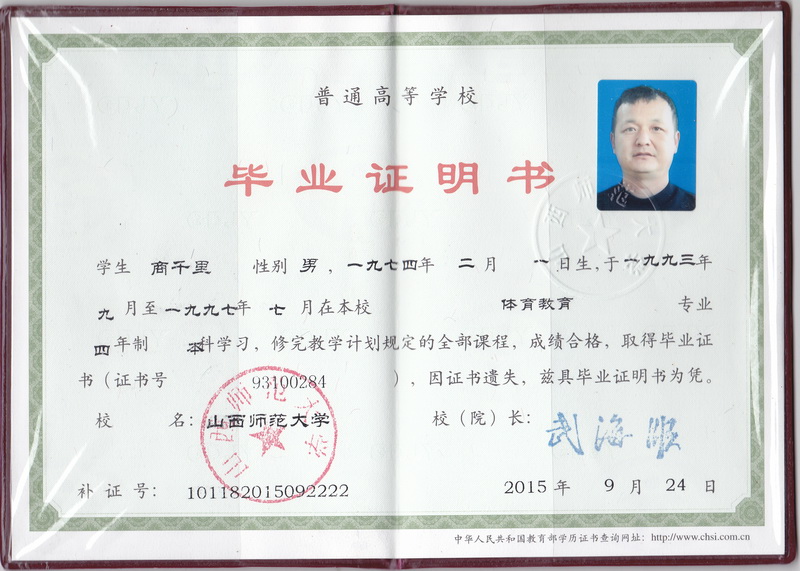 普通高等学校
毕业证明书
学生 商千里 性别 男，一九七四年 二 月 一 日生，于一九九三年
九 月至一九九七年 七 月在本校 体育教育 专业
四 年制 本 科学习，修完教学计划规定的全部课程，成绩合格，取得毕业证
书（证书号 93100284 ），因证书遗失，兹具毕业证明书为凭。
校 名：山西师范大学 校（院）长：武海顺
山西师范大学
补 证 号：101182015092222 2015 年 9 月 24 日
中华人民共和国教育部学历证书查询网址：http://www.chsi.com.cn